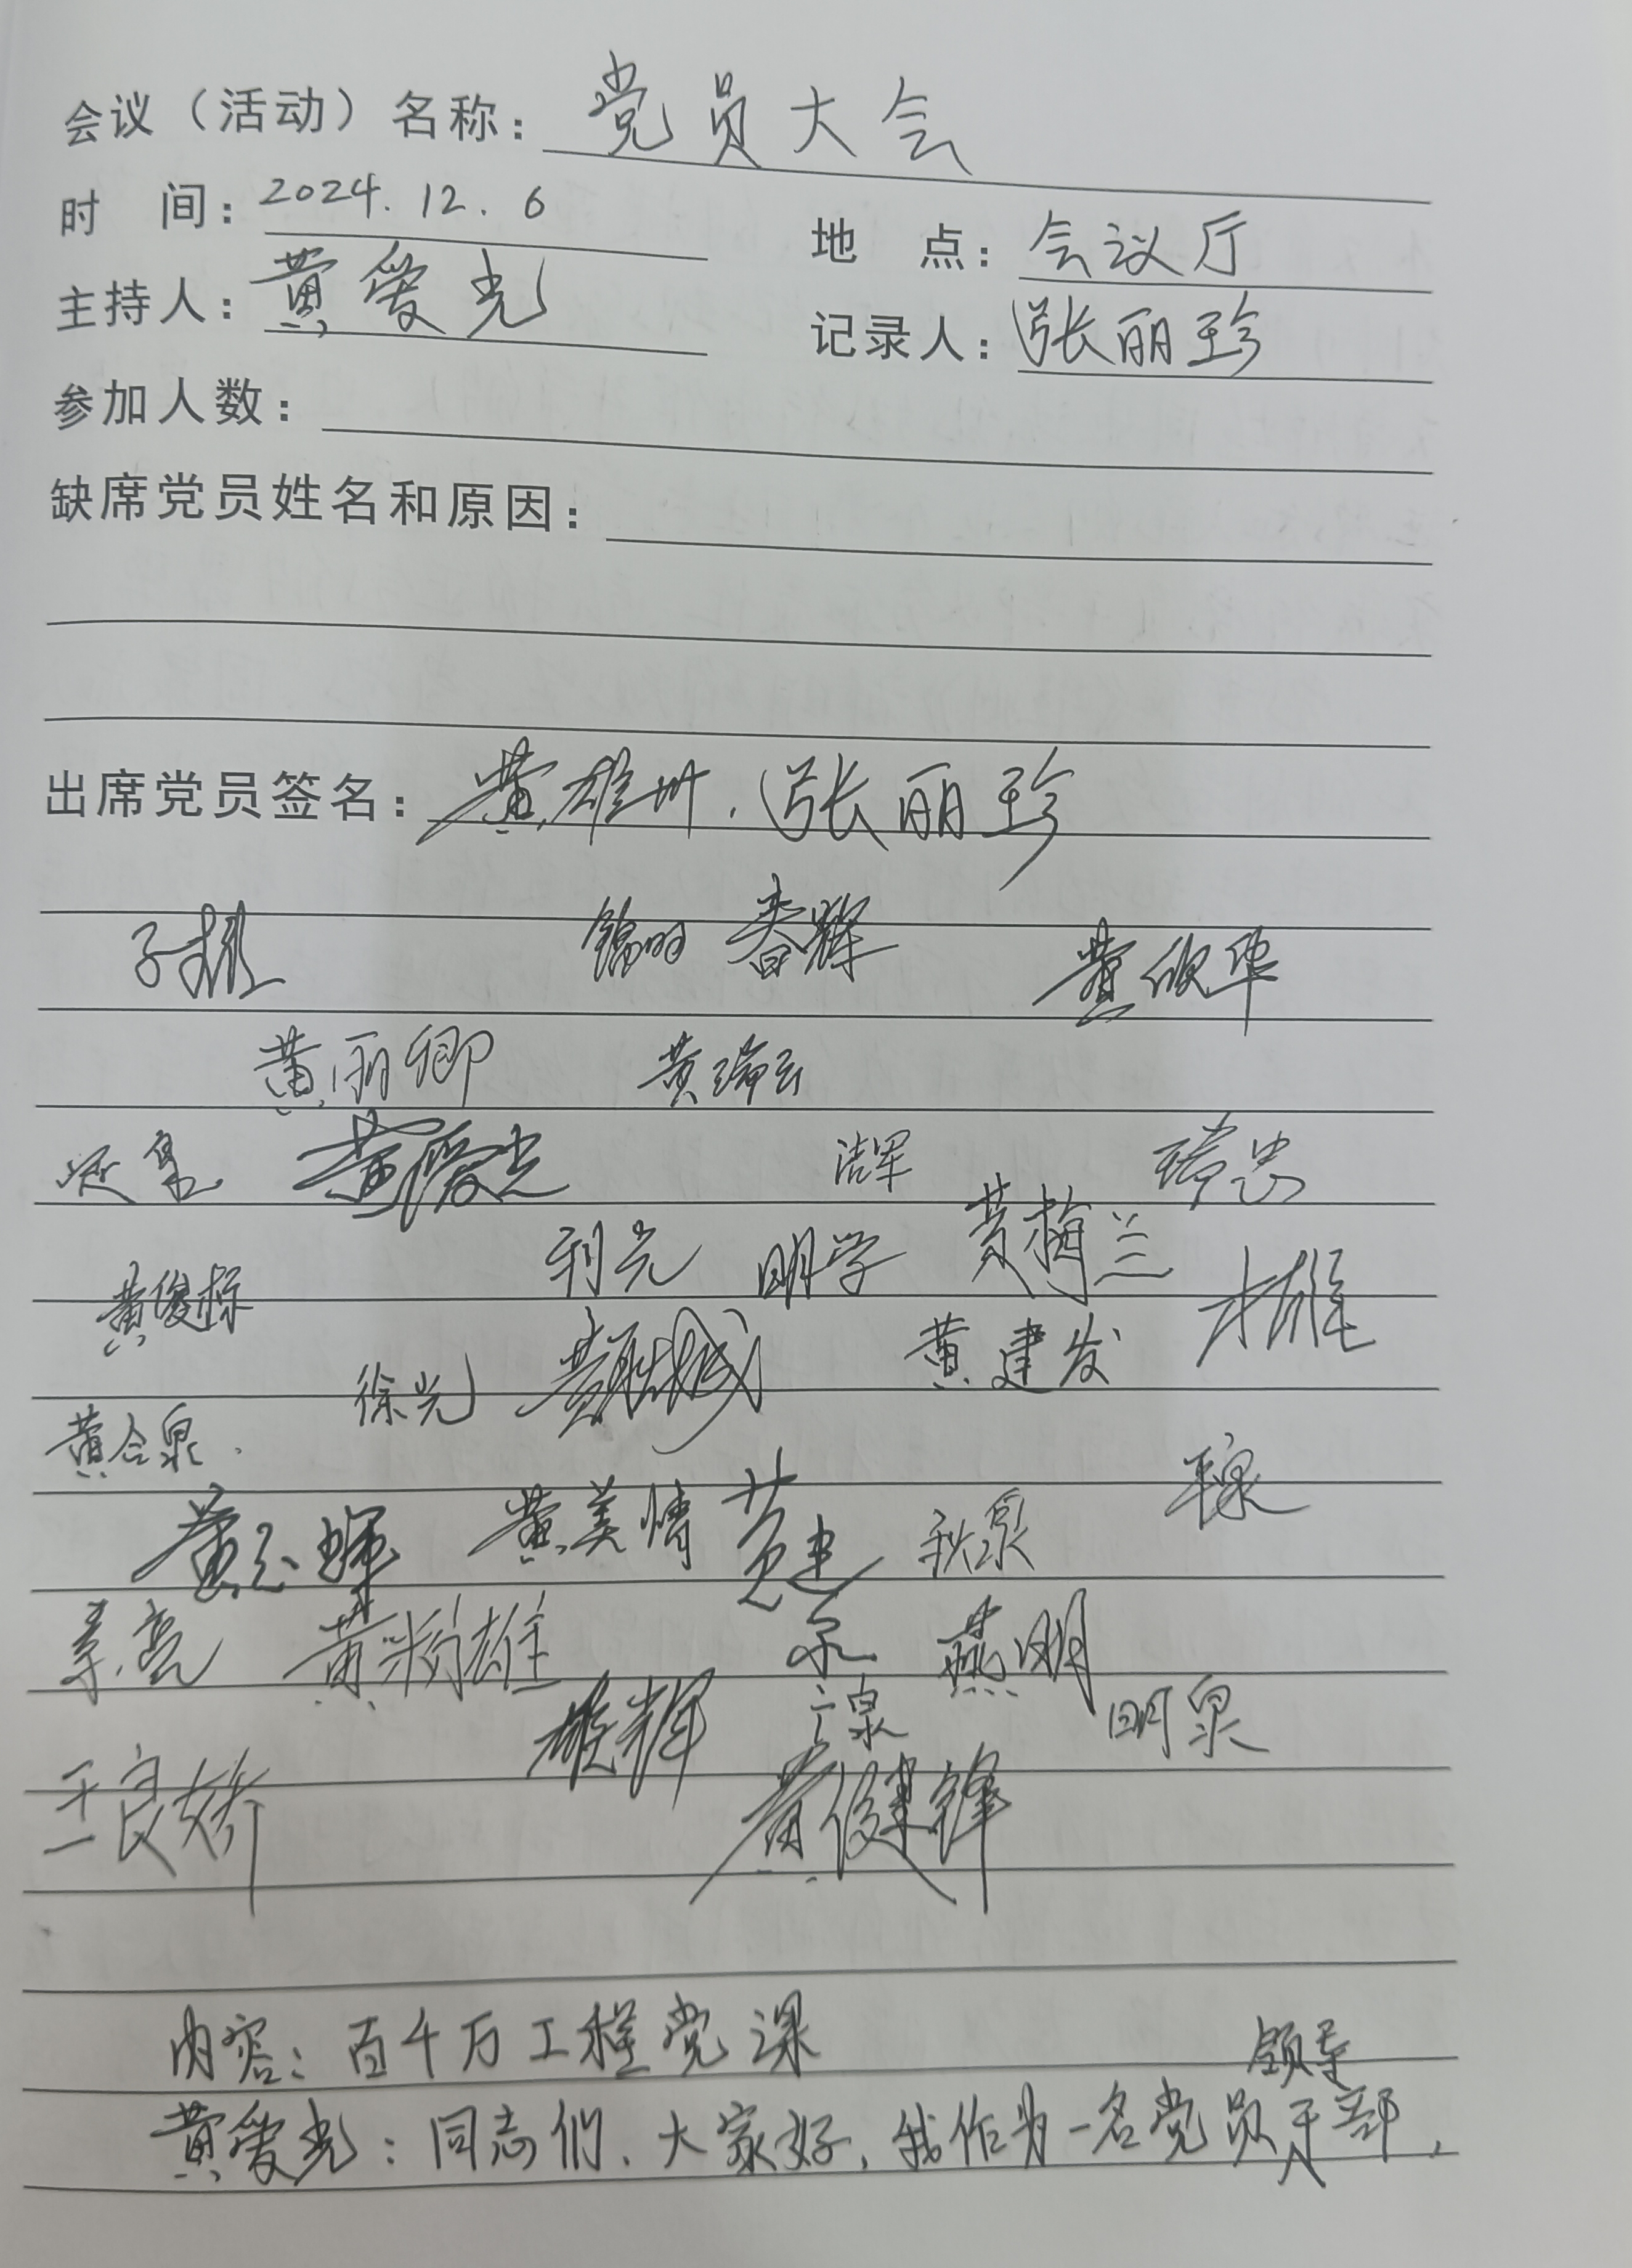 会议（活动）名称：党员大会
时　间：2024.12.6　地　点：会议厅
主持人：黄爱光　记录人：张丽珍
参加人数：
缺席党员姓名和原因：
出席党员签名：黄雄州.张丽珍
子雄　锦明　春辉　黄欣华
黄丽卿　黄瑞云
黄爱光　洁军　瑞忠
利光　明学　黄梅兰
黄俊标　才雄
徐光　黄建发
黄合泉.　平泉
黄美情　秋泉
黄建泉　燕明
雄辉　明泉
王良娇　黄健锋
内容：百千万工程党课
黄爱光：同志们、大家好，我作为一名党员领导干部，